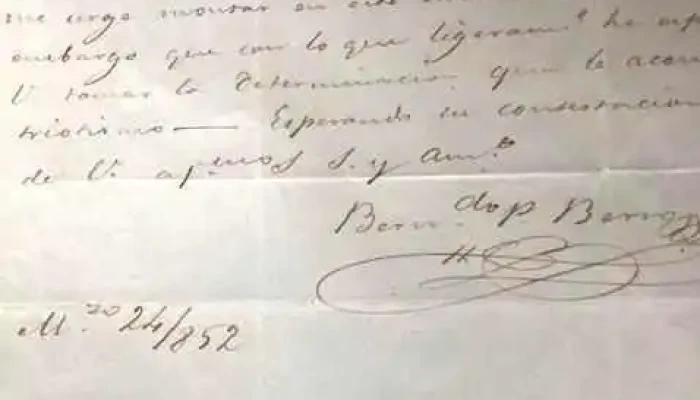 me urge montar en este
embargo que con lo que ligeram.e he
V. tomar la determinacion que le acon
triotismo — Esperando su contestacion
de V. ap.mos S. y Am.o
Bern.do p. Berro
M.zo 24/852